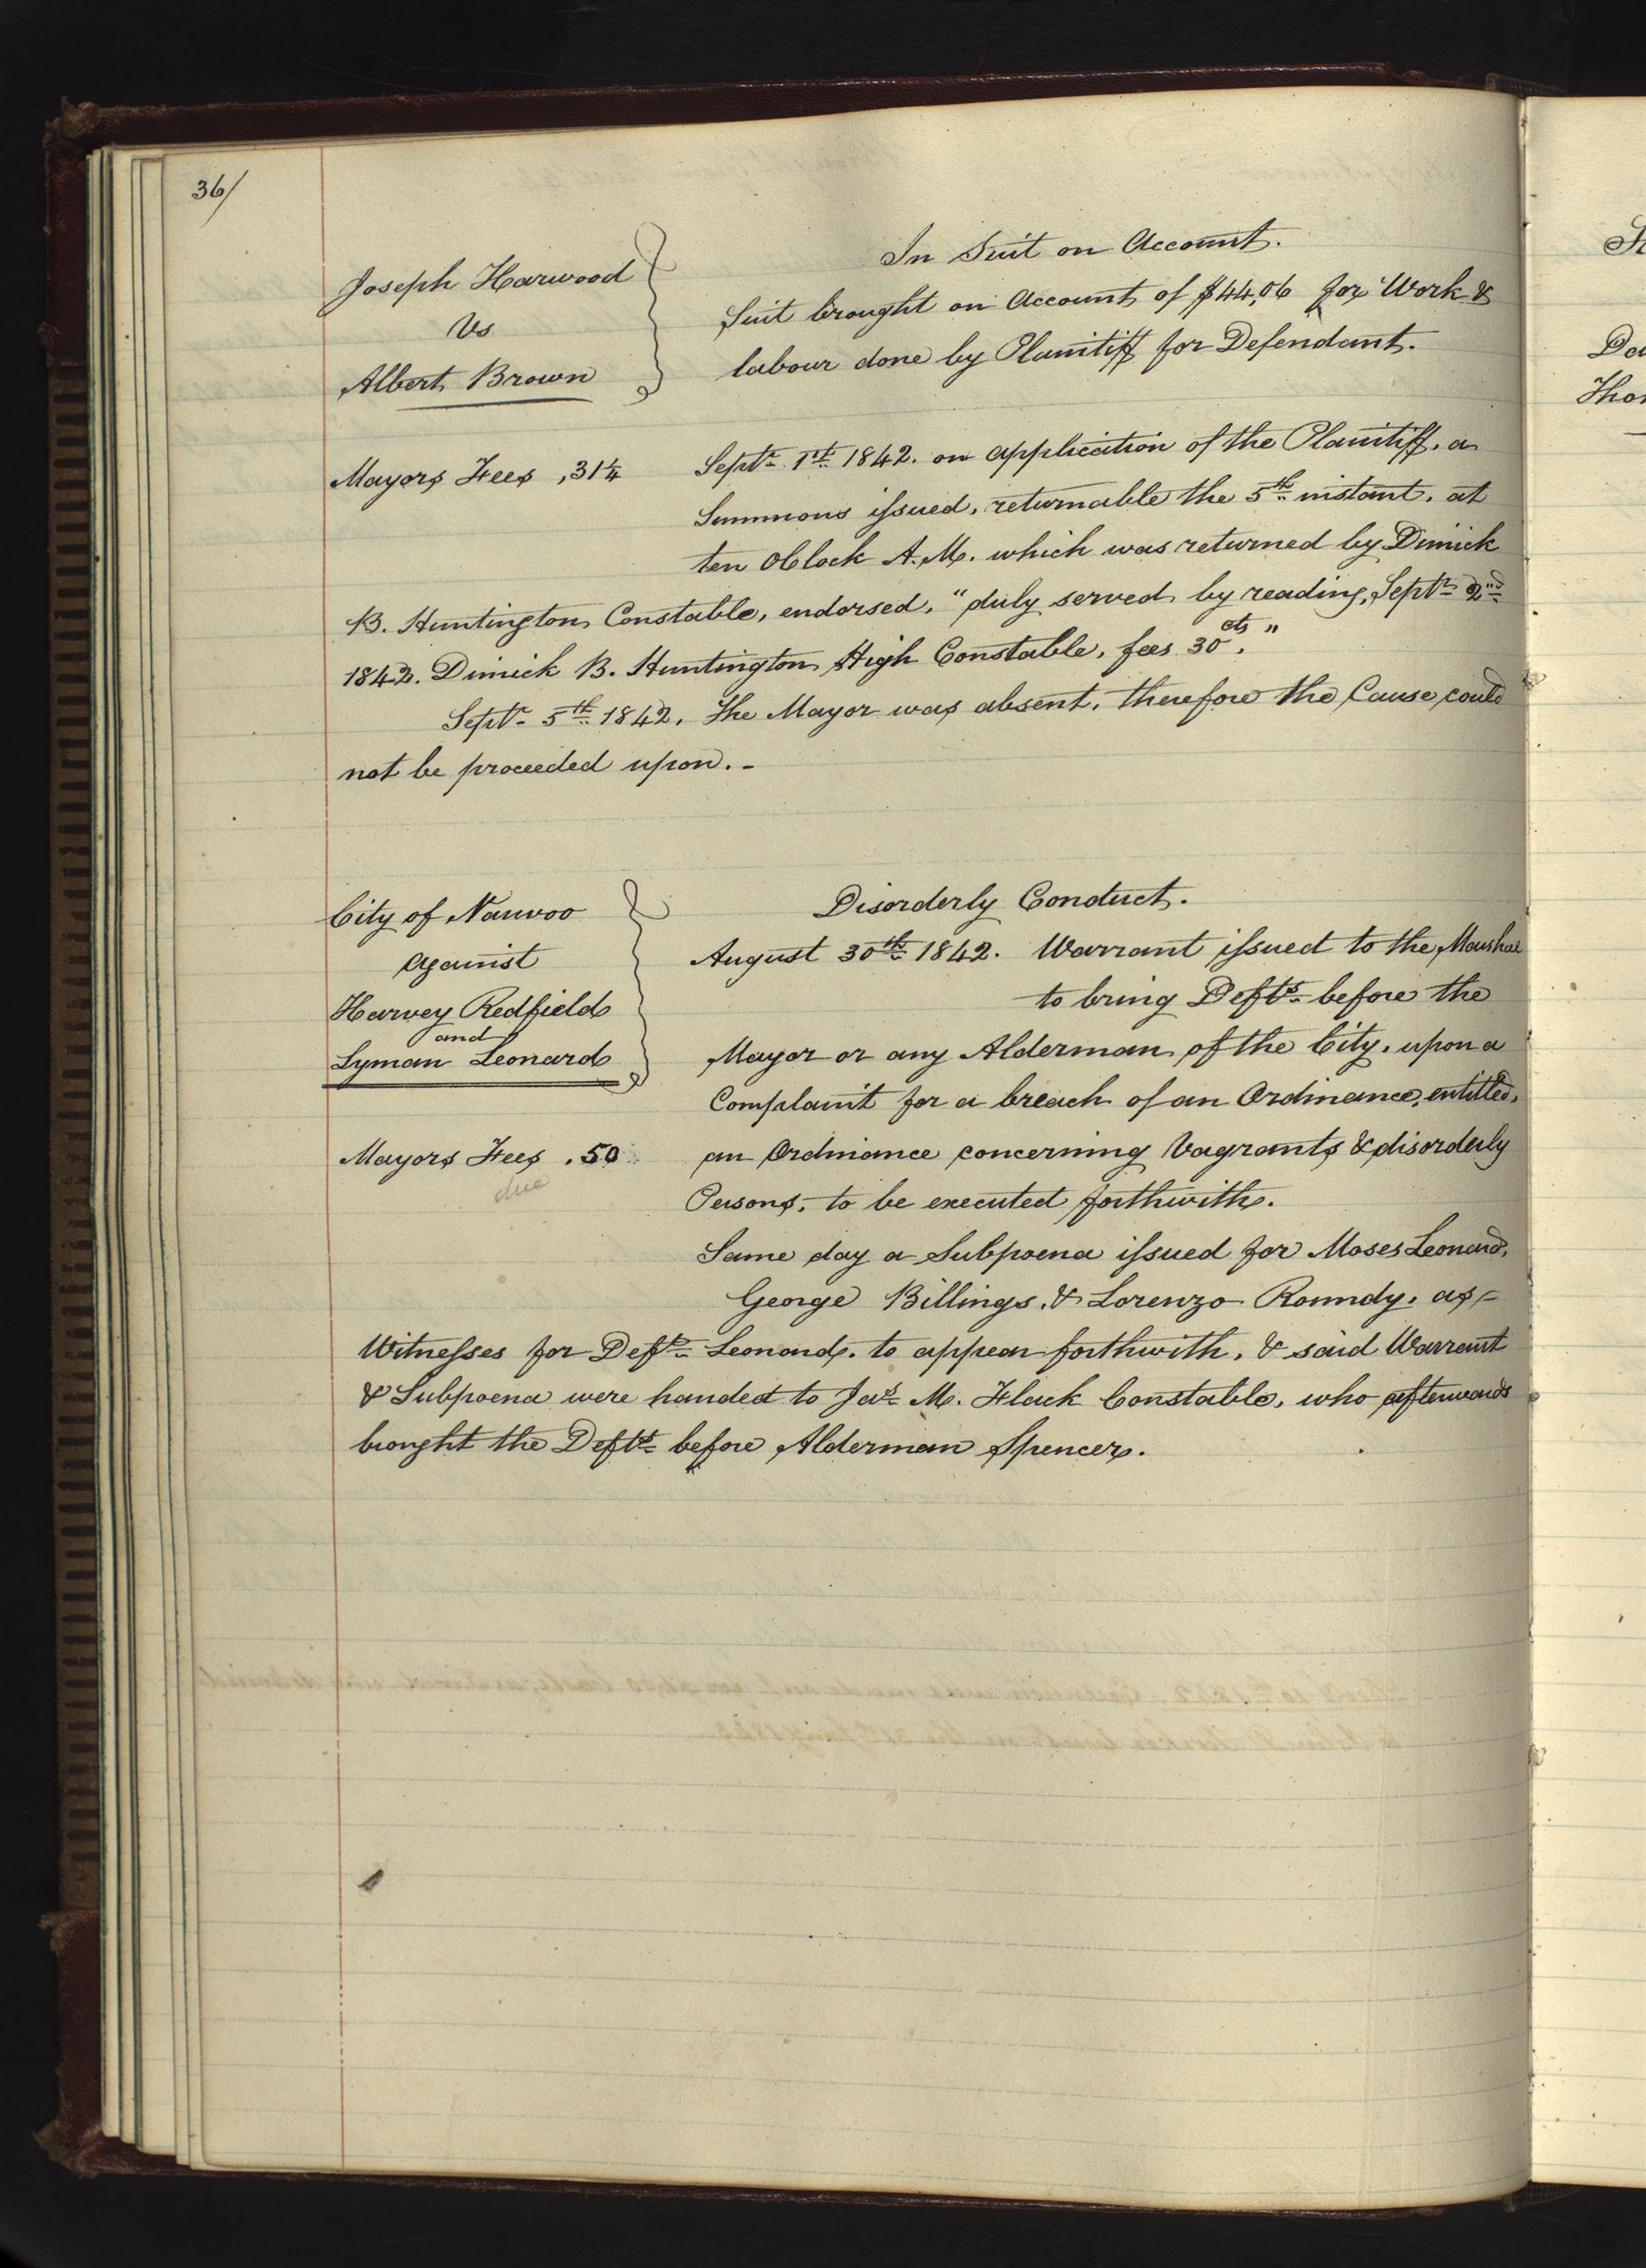 36/
In Suit on Account.
Joseph Harwood
Vs
Albert Brown
Suit brought on Account of $44,06 for Work &
labour done by Plaintiff for Defendant.
Mayors Fees ,31¼
Septr. 1st. 1842. on application of the Plaintiff, a
Summons issued, returnable the 5th. instant, at
ten Oclock A.M. which was returned by Dimick
B. Huntington Constable, endorsed, "duly served by reading, Septr. 2nd.
1842. Dimick B. Huntington High Constable, fees 30cts."
Septr. 5th. 1842, The Mayor was absent, therefore the Cause could
not be proceeded upon. -
City of Nauvoo
against
Harvey Redfield
and
Lyman Leonard
Disorderly Conduct.
August 30th. 1842. Warrant issued to the Marshal
to bring Defts. before the
Mayor or any Alderman of the City, upon a
Complaint for a breach of an Ordinance, entitled,
Mayors Fees .50
due
an Ordinance concerning Vagrants & disorderly
Persons, to be executed forthwith.
Same day a Subpoena issued for Moses Leonard,
George Billings, & Lorenzo Roundy, as
Witnesses for Deft. Leonard, to appear forthwith, & said Warrant
& Subpoena were handed to Jas. M. Flack Constable, who afterwards
brought the Defts. before Alderman Spencer.